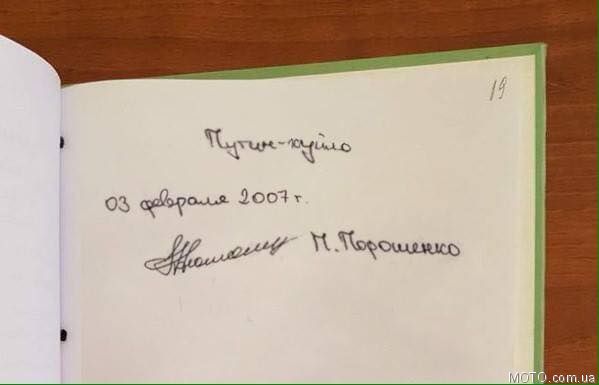 19
Путин-хуйло
03 февраля 2007 г.
П. Порошенко
MOTO.com.ua